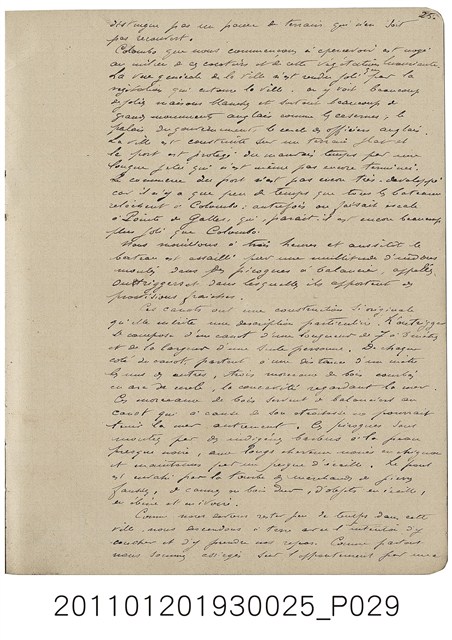 25.
distingue pas un pouce de terrain qui n'en soit
pas recouvert.
Colombo que nous commençons à apercevoir est
au milieu de ces cocotiers et de cette végétation luxuriante.
La vue générale de la ville n'est rendue par la
végétation qui entoure la ville. on y voit beaucoup
de jolies maisons blanches et surtout beaucoup de
grands monuments anglais comme les casernes, le
palais du gouvernement, le cercle des officiers anglais.
La ville est construite sur un terrain plat et
le port est protégé du mauvais temps par une
longue jetée qui n'est même pas encore terminée.
Le commerce du port n'est pas encore très développé
car il n'y a que peu de temps que tous les bateaux
relâchent à Colombo; autrefois on faisait escale
à Pointe de Galles, qui, parait-il est encore beaucoup
plus joli que Colombo.
Nous mouillons à trois heures et aussitôt le
bateau est assailli par une multitude d'indiens
montés dans des pirogues à balancier, appelées
Outriggers et dans lesquelles ils apportent des
provisions fraîches.
Ces canots ont une construction si originale
qu'elle mérite une description particulière. L'outrigger
se compose d'un canot d'une longueur de
et de la largeur d'une seule personne. De chaque
côté du canot, partent à une distance d'un mètre
les uns des autres, trois morceaux de bois courbés
en arc de cercle, la concavité regardant la mer.
Ces morceaux de bois servent de balanciers au
canot qui à cause de son étroitesse ne pourrait
tenir la mer autrement. Ces pirogues sont
montées par des indigènes barbus à la peau
presque noire, aux longs cheveux noués en chignon
et maintenus par un peigne d'écaille. Le pont
est envahi par la foule des marchands de pierres
fausses, de cannes en bois dur, d'objets en écaille,
en ébène et en ivoire.
Comme nous devons rester peu de temps dans cette
ville, nous descendons à terre avec l'intention d'y
coucher et d'y prendre nos repas. Comme partout
nous sommes assiégés sur l'appontement par une
201101201930025_P029